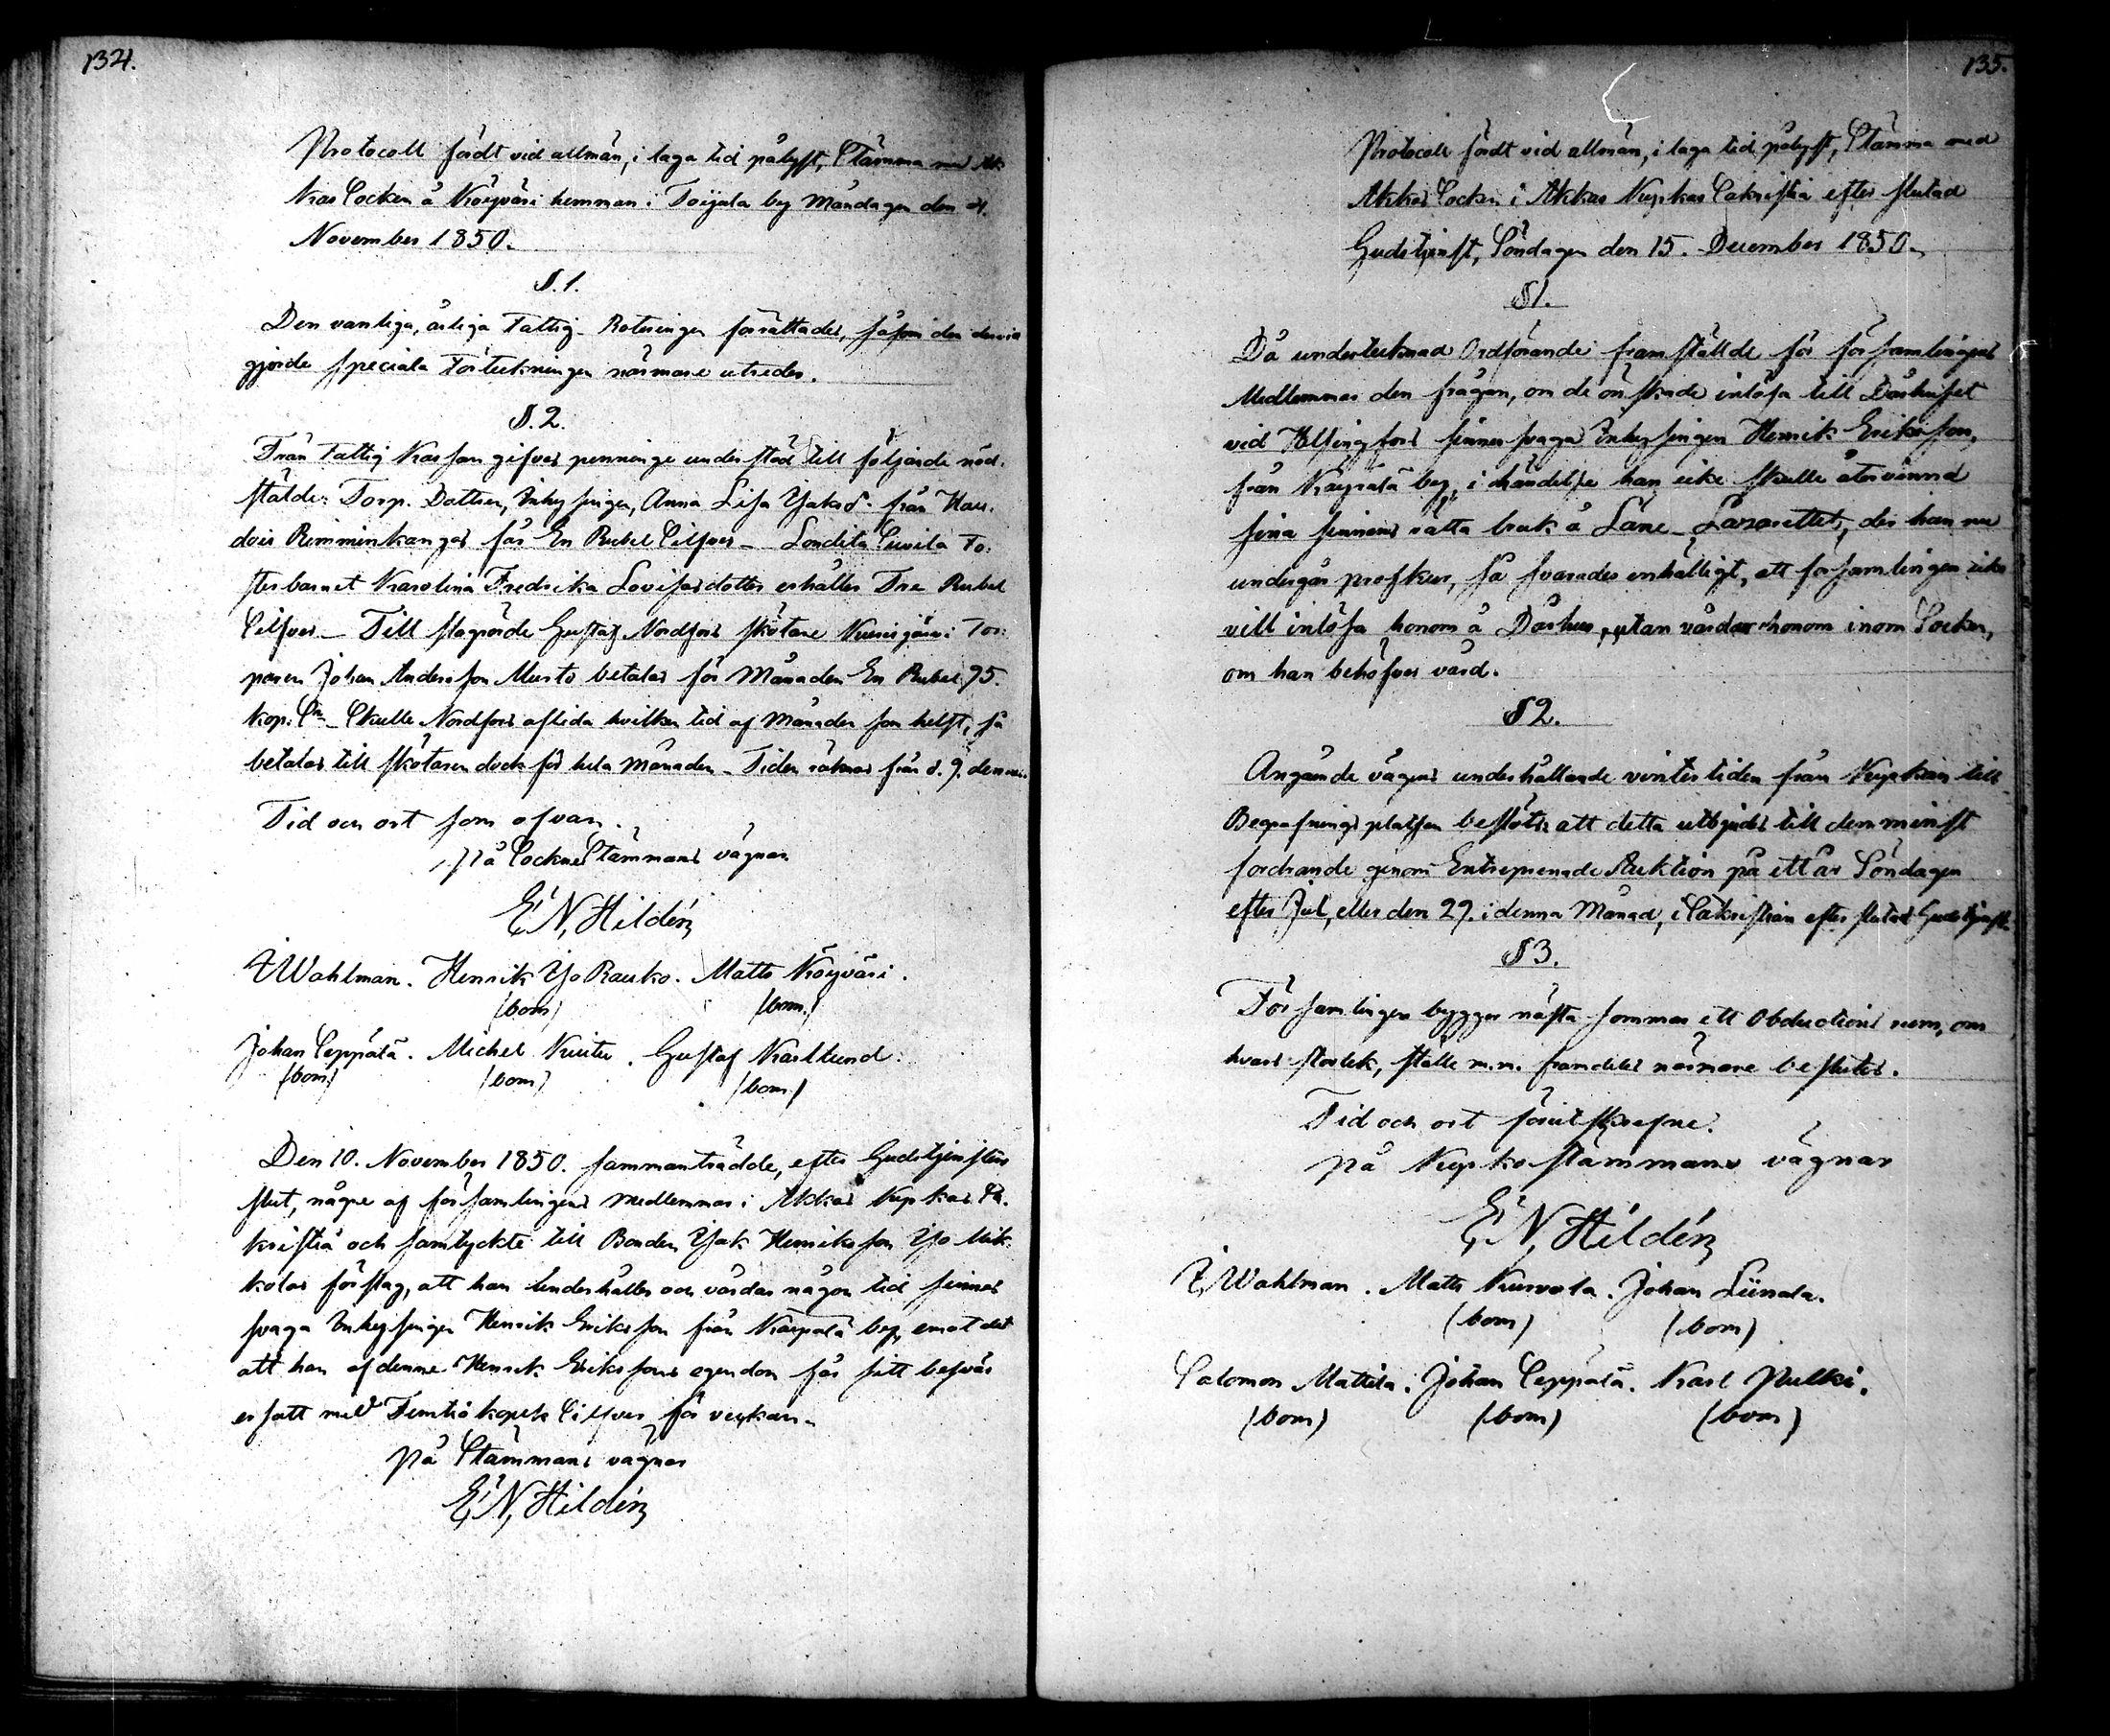 134.
Protocoll fördt vid allmän, i laga tid pålyst, Stämma med Ak-
kas Socken å Köyväri hemman i Toijala by Måndagen den 4.
November 1850.
§. 1.
Den vanliga, årliga Fattig-Roteringen förrättades, såsom den dervid
gjorde speciala Förteckningen närmare utreder.
§. 2.
Från Fattig Kassan gifves penninge understöd till följande nöd-
stälde: Torp. Dottren, Inhysingen, Anna Lisa Jaksd. från
Rimminkangas får En Rubel Silfver _ Sondita To.
sterbarnet Karolina Fredrika Lovisasdotter erhåller Tre Rubel
Silfver _ Till slagrörde Gustaf Nordfors skötare Kurisjärvi Tor-
paren Johan Andersson Musto betalas för Månaden En Rubel 75.
kop. Sr _ Skulle Nordfors aflida hvilken tid af Månaden som helst, så
betalas till skötaren dock för hela Månaden _ Tiden räknas från d. 9. dennes
Tid och ort som ofvan.
på SockneStämmans vägnar
E. N. Hildén
Wahlman. Henrik Yo Rauko. Matts Köyväri.
(bom) (bom)
Johan Seppälä. Michel Kuitu. Gustaf Karllund.
(bom) (bom) (bom)
Den 10. November 1850. sammanträdde, efter Gudstjenstens
slut, någre af församlingens medlemmar i Akkas Kyrkas Sa-
kristia och samtyckte till Bonden Jak Henriksson Yo Mik-
kolas förslag, att han underhåller och vårdar någon tid sinnes
svaga Inhysingen Henrik Eriksson från Kärpälä by, emot det
att han af denne Henrik Erikssons egendom får sitt besvär
ersatt med Femtio kopek Silfver för veckan.
på Stämmans vägnar
E. N. Hildén
135.
Protocoll fördt vid allmän, i laga tid pålyst, Stämma med
Akkas Socken i Akkas Kyrkas Sakristia efter slutad
Gudstjenst, Söndagen den 15. December 1850.
§ 1.
Då undertecknad Ordförande framställde för församlingens
Medlemmar den frågan, om de önskade inlösa till Dårhuset
vid Helsingfors sinnessvaga Inhysingen Henrik Eriksson,
från Kärpälä by, i händelse han icke skulle återvinna
sina sinnens rätta bruk å Läne-Lazarettet, der han nu
undergår profkur, så svarades enhälligt, att församlingen icke
vill inlösa honom å Dårhus, utan vårdar honom inom Socken,
om han behöfver vård.
§ 2.
Angående vägens underhållande vintertiden från Kyrkan till
Begrafningsplatsen beslöts att detta utbjudes till den minst
fordrande genom Entreprenade Auktion på ett år Söndagen
efter Jul, eller den 29. i denna Månad, i Sakristian efter slutad Gudstjenst.
§ 3.
Församlingen bygger nästa sommar ett Obductions rum, om
hvars storlek, ställe m.m. framdeles närmare beslutes.
Tid och ort förutskrefne.
på Kyrkostämmans vägnar
E. N. Hildén
Wahlman. Matts Kurvola. Johan Liunala.
(bom) (bom)
Salomon Mattila. Johan Seppälä. Karl Pulki.
(bom) (bom) (bom)